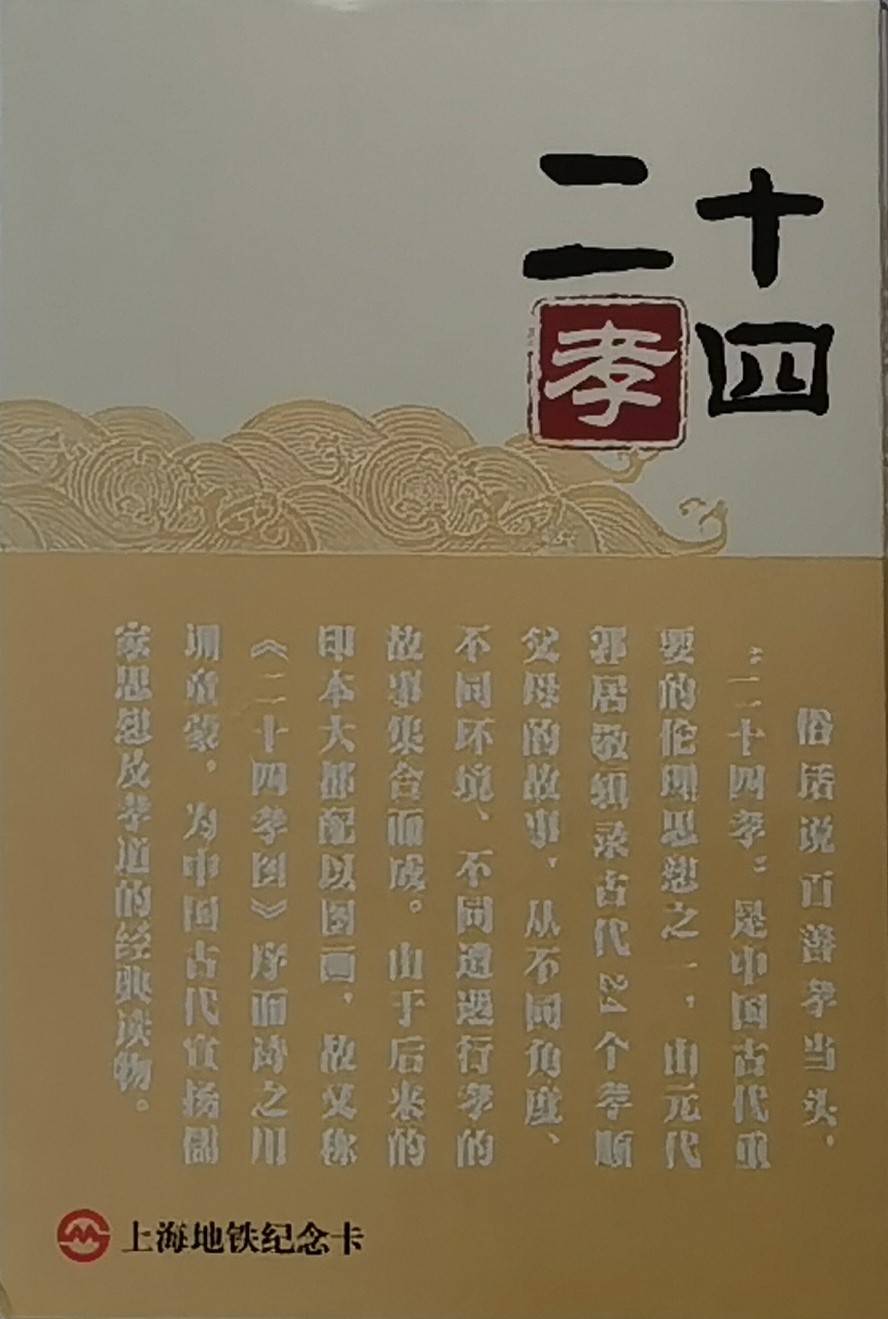 二十四孝
俗话说百善孝当头，
“二十四孝”是中国古代重
要的伦理思想之一，由元代
郭居敬辑录古代24个孝顺
父母的故事，从不同角度、
不同环境、不同遭遇行孝的
故事集合而成。由于后来的
印本大都配以图画，故又称
《二十四孝图》序而诗之用
训童蒙，为中国古代宣扬儒
家思想及孝道的经典读物。
上海地铁纪念卡